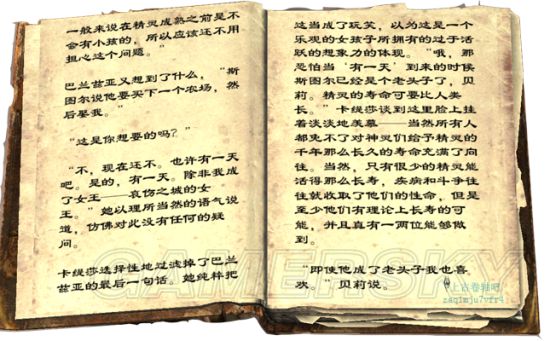 一般来说在精灵成熟之前是不
会有小孩的，所以应该还不用
担心这个问题。”
巴兰兹亚又想到了什么，“斯
图尔说他要买下一个农场，然
后娶我。”
“这是你想要的吗？”
“不，现在还不。也许有一天
吧。是的，有一天。除非我成
了女王——哀伤之城的女
王。” 她以理所当然的语气说
道，仿佛对此没有任何的疑
问。
卡缇莎选择性地过滤掉了巴兰
兹亚的最后一句话。她纯粹把
这当成了玩笑，以为这是一个
乐观的女孩子所拥有的过于活
跃的想象力的体现。 “哦，那
恐怕当‘有一天’到来的时候
斯图尔已经是个老头子了，贝
莉。精灵的寿命可要比人类
长。” 卡缇莎谈到这里脸上挂
着淡淡地羡慕——当然所有人
都免不了对神灵们给予精灵的
千年那么长久的寿命充满了向
往。当然，只有很少的精灵能
活得那么长寿，疾病和斗争往
往就收取了他们的性命，但是
至少他们有理论上长寿的可
能，并且真有一两位能够做
到。
“即使他成了老头子我也喜
欢。”贝莉说。
GAMERSKY
上古卷轴吧
zaq1mju7vfr4